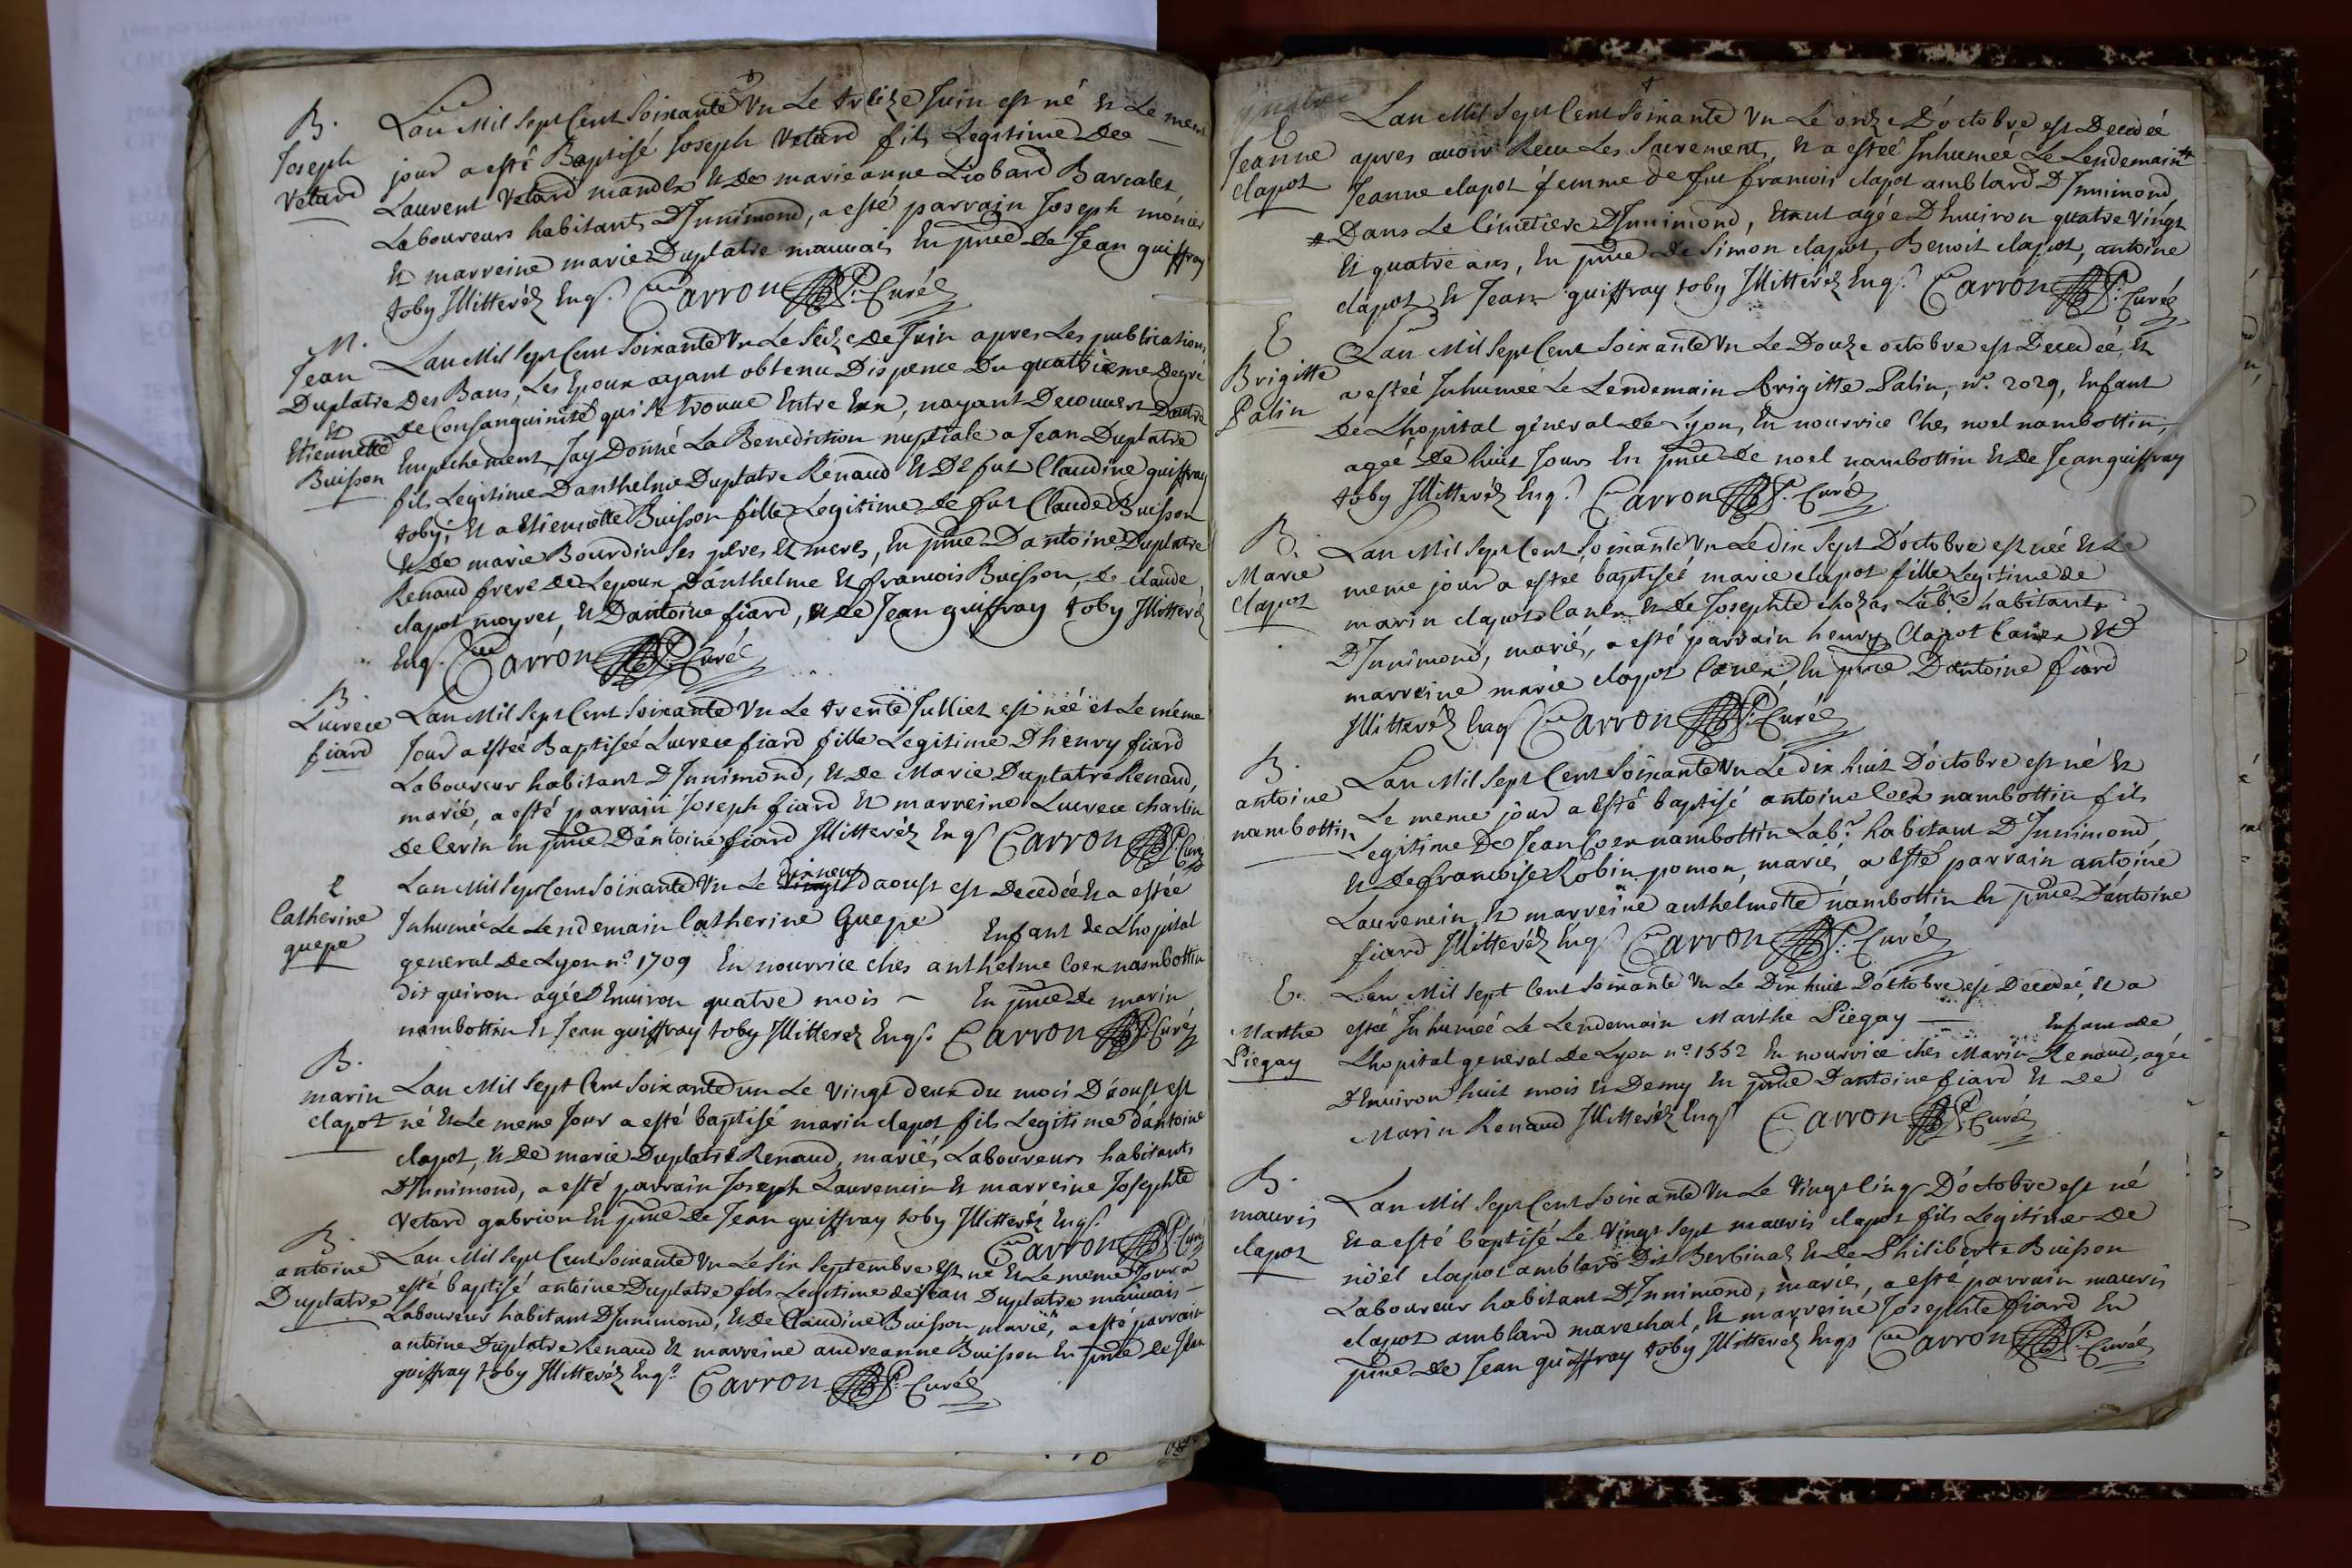 B.
Joseph
Vetard
Lan Mil Sept Cent Soixante Un Le treize Juin est né et Le meme
jour a esté Baptisé Joseph Vetard fils Legitime de
Laurent Vetard mandex et de marieanne Liobard Barcalet,
Laboureurs habitants D'Innimond, a esté parrain Joseph
et marreine marie Duplatre mauvais En pnce de Jean guiffray
toby Illitteréz Enqs. Carron Curé
M.
Jean
Duplatre
et
Etiennette
Buisson
Lan Mil Sept Cent Soixante Un Le Seize de Juin apres Les publications
Des Bans, Les Epoux ayant obtenu Dispence Du quatrieme Degré
de Consanguinité qui se trouve Entre Eux, nayant Decouvert Dautre
Empechement, Jay Donné La Benediction nuptiale a Jean Duplatre
fils Legitime Danthelme Duplatre Renaud et De fut Claudine guiffray
toby, et a Etiennette Buisson fille Legitime de fut Claude Buisson
et De marie Bourdin Ses peres et meres, En pnce Dantoine Duplatre
Renaud frere de Lepoux, Danthelme et francois Buisson, de Claude
clapot moyret, et Dantoine fiard, et de Jean guiffray toby Illitteréz
Enqs. Carron Curé
B.
Lucrece
fiard
Lan Mil Sept Cent Soixante Un Le trente Julliet est néé et Le méme
Jour a estéé Baptiséé Lucrece fiard fille Legitime Dhenry fiard
Laboureur habitant D'Innimond, et de Marie Duplatre Renaud,
marié, a esté parrain Joseph fiard et marreine Lucrece charlin
de Cerin En pnce Dántoine fiard Illitteréz Enqs Carron Curé
E
Catherine
guepe
Lan Mil Sept Cent Soixante Un Le dixneuf daoust est Decedéé et a estée
Inhumée Le Lendemain Catherine Guepe Enfant de Lhopital
general de Lyon n.o 1709 En nourrice ches anthelme Coex nambottin
dit guiron agée D'Environ quatre mois – En pnce de marin
nambottin et Jean guiffray toby Illitteréz Enqs. Carron Curé
B.
marin
clapot
Lan Mil Sept Cent Soixante un Le Vingt deux du mois Dáoust est
né et Le meme Jour a esté baptisé marin clapot fils Legitime dántoine
clapot, et De marie Duplatre Renaud, mariés, Laboureurs habitants
D'Innimond, a esté parrain Joseph Laurencin et marreine Josephte
Vetard gabrion En pnce de Jean guiffray toby Illitteréz Enqs.
Carron Curé
B.
antoine
Duplatre
Lan Mil Sept Cent Soixante Un Le Six Septembre est né et Le meme Jour a
esté baptisé antoine Duplatre fils Legitime de Jean Duplatre mauvais
Laboureur habitant D'Innimond, et De Claudine Buisson marié, a esté parrain
antoine Duplatre Renaud et marreine andreanne Buisson En pnce de Jean
guiffray toby Illitteréz Enqs. Carron Curé
E
Jeanne
clapot
Lan Mil Sept Cent Soixante Un Le onze D'óctobre est Decedéé
apres avoir Recu Les Sacrements, et a estéé Inhuméé Le Lendemain #
Jeanne clapot femme de fut francois clapot amblard D'Innimond
# Dans Le Cimetiere D'Innimond, Etant agée D'Environ quatre Vingt
et quatre ans, En pnce de Simon clapot, Benoit clapot, antoine
clapot et Jean guiffray toby Illitteréz Enqs. Carron Curé
E
Brigitte
Palin
Lan Mil Sept Cent Soixante Un Le Douze octobre est Decedéé, et
a estéé Inhuméé Le Lendemain Brigitte Palin, n.o 2029, Enfant
de Lhopital géneral de Lyon, En nourrice Ches noel nambottin,
agéé de huit Jours En pnce de noel nambottin et De Jean guiffray
toby Illitteréz Enqs. Carron Curé
B.
Marie
clapot
Lan Mil Sept Cent Soixante Un Le dix Sept D'óctobre est néé et Le
meme jour a estéé baptiséé marie clapot fille Legitime de
marin clapot Canex et de Josephte chozas Lab.rs habitants
D'Innimond, mariés, a esté parrain henry clapot Canex et
marreine marie clapot Canex En pnce Dantoine fiard
Illitteréz Enqs Carron Curé
B.
antoine
nambottin
Lan Mil Sept Cent Soixante Un Le dix huit D'óctobre est né et
Le meme jour a Esté baptisé antoine Coex nambottin fils
Legitime De Jean Coex nambottin Lab.r habitant D'Innimond
et de francoise Robin pomon, mariés, a esté parrain antoine
Laurencin, et marreine anthelmette nambottin En pnce Dántoine
fiard Illitteréz Enqs Carron Curé
E.
Marthe
Piégay
Lan Mil Sept Cent Soixante Un Le Dix huit D'óctobre est Decedéé, et a
estéé Inhuméé Le Lendemain Marthe Piégay — Enfant de
Lhopital general de Lyon n.o 1552 En nourrice ches Marin Renaud, agée
D'Environ huit mois et Demy En pnce Dantoine fiard et de
Marin Renaud Illitteréz Enqs Carron Curé
B.
mauris
clapot
Lan Mil Sept Cent Soixante Un Le Vingt Cinq D'óctobre est né
et a esté baptisé Le Vingt Sept mauris clapot fils Legitime de
nöel clapot amblard Dit Berbinaz et De Philiberte Buisson
Laboureur habitant D'Innimond, mariés, a esté parrain mauris
clapot amblard marechal, et marreine Josephte fiard En
pnce de Jean guiffray toby Illitteréz Enqs Carron Curé